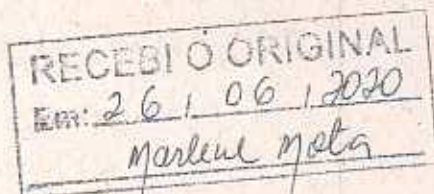 RECEBI O ORIGINAL
Em: 26 / 06 / 2020
Marlene Mota